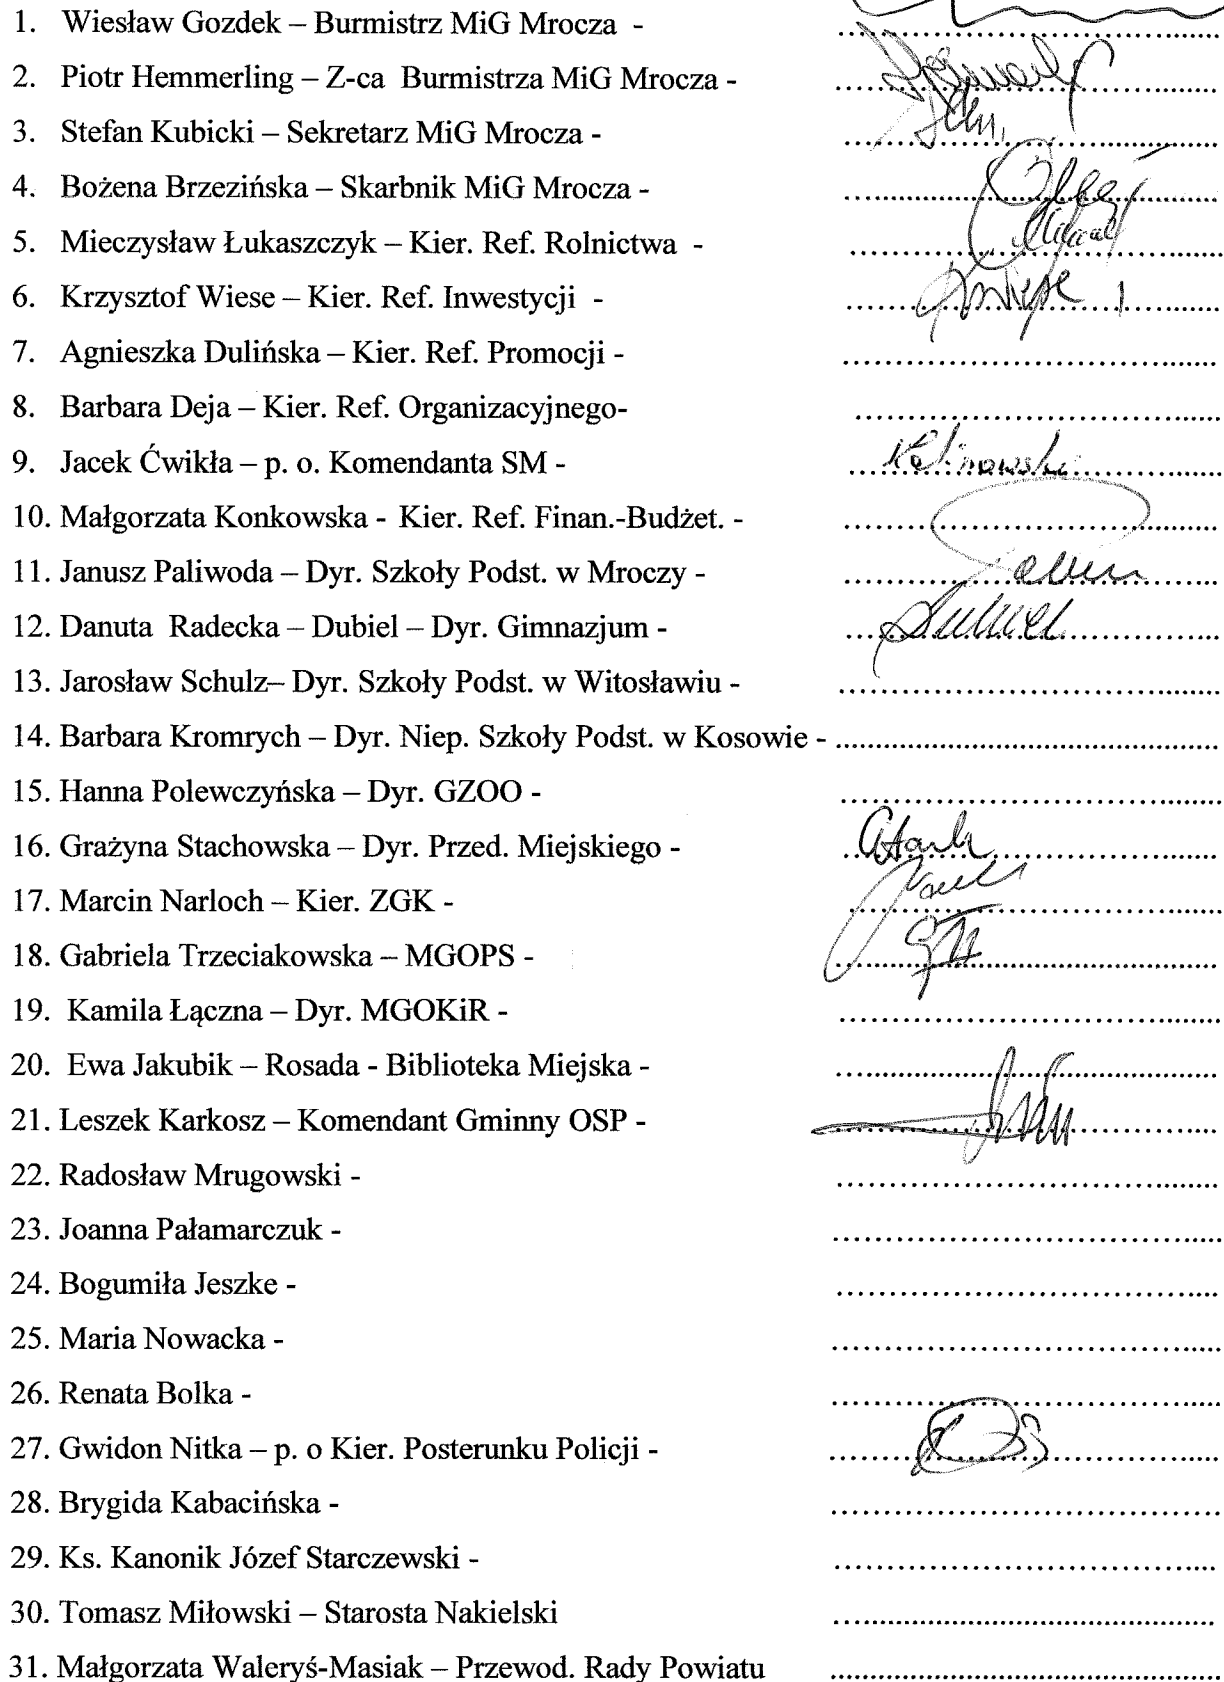 1. Wiesław Gozdek – Burmistrz MiG Mrocza - ........................................
2. Piotr Hemmerling – Z-ca Burmistrza MiG Mrocza - ........................................
3. Stefan Kubicki – Sekretarz MiG Mrocza - ........................................
4. Bożena Brzezińska – Skarbnik MiG Mrocza - ........................................
5. Mieczysław Łukaszczyk – Kier. Ref. Rolnictwa - ........................................
6. Krzysztof Wiese – Kier. Ref. Inwestycji - ........................................
7. Agnieszka Dulińska – Kier. Ref. Promocji - ........................................
8. Barbara Deja – Kier. Ref. Organizacyjnego- ........................................
9. Jacek Ćwikła – p. o. Komendanta SM - ........................................
10. Małgorzata Konkowska - Kier. Ref. Finan.-Budżet. - ........................................
11. Janusz Paliwoda – Dyr. Szkoły Podst. w Mroczy - ........................................
12. Danuta Radecka – Dubiel – Dyr. Gimnazjum - ........................................
13. Jarosław Schulz– Dyr. Szkoły Podst. w Witosławiu - ........................................
14. Barbara Kromrych – Dyr. Niep. Szkoły Podst. w Kosowie - ........................................
15. Hanna Polewczyńska – Dyr. GZOO - ........................................
16. Grażyna Stachowska – Dyr. Przed. Miejskiego - ........................................
17. Marcin Narloch – Kier. ZGK - ........................................
18. Gabriela Trzeciakowska – MGOPS - ........................................
19. Kamila Łączna – Dyr. MGOKiR - ........................................
20. Ewa Jakubik – Rosada - Biblioteka Miejska - ........................................
21. Leszek Karkosz – Komendant Gminny OSP - ........................................
22. Radosław Mrugowski - ........................................
23. Joanna Pałamarczuk - ........................................
24. Bogumiła Jeszke - ........................................
25. Maria Nowacka - ........................................
26. Renata Bolka - ........................................
27. Gwidon Nitka – p. o Kier. Posterunku Policji - ........................................
28. Brygida Kabacińska - ........................................
29. Ks. Kanonik Józef Starczewski - ........................................
30. Tomasz Miłowski – Starosta Nakielski ........................................
31. Małgorzata Waleryś-Masiak – Przewod. Rady Powiatu ........................................